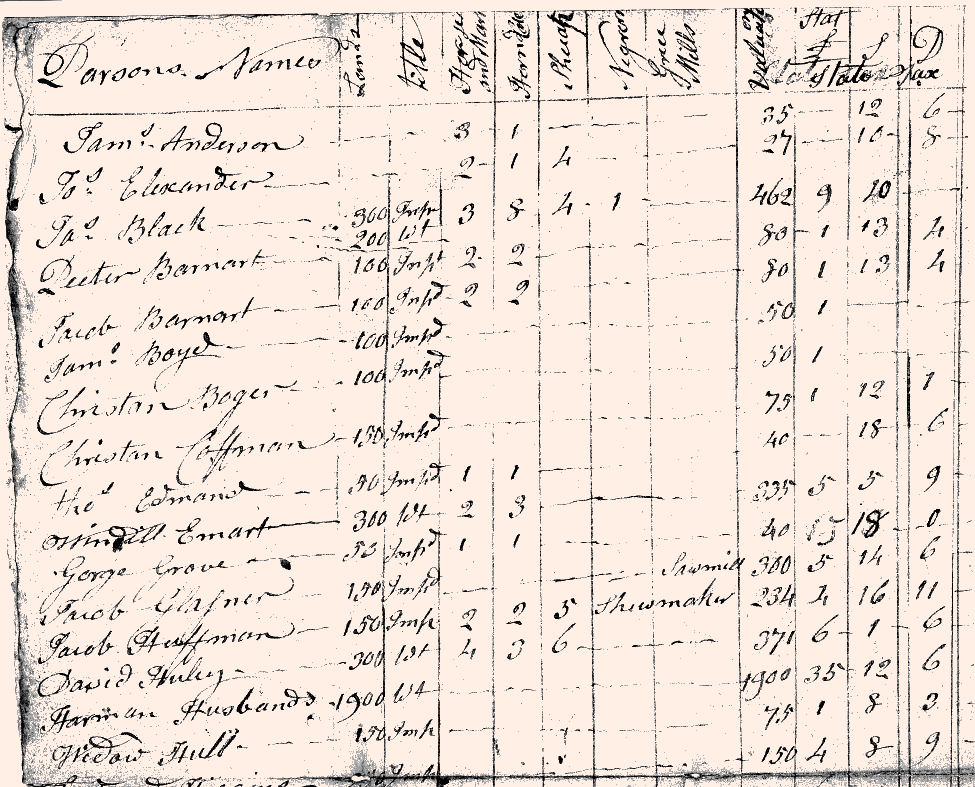 Parsons Names Lands title Horses and Mars Hornd Cattle Sheap Negros Grice Mills Valuation Stat £ S D tax
Jams Anderson 3 1 35 12 6
Jos Elexander 2 1 4 27 10 8
Jas Black 300 Impr 3 8 4 1 462 9 10
200 Wt 80 1 13 4
Peeter Barnart 100 Impd 2 2 80 1 13 4
Jacob Barnart 100 Impd 2 2 50 1
Jams Boyd 100 Impd 50 1
Christan Boger 100 Impd 75 1 12 1
Christan Coffman 150 Impd 40 18 6
thos Edmand 50 Impd 1 1 335 5 5 9
Windell Emart 300 Wt 2 3 40 18 0
Gorge Grove 53 Impd 1 1 Sawmill 300 5 14 6
Jacob Glasner 150 Impd Shewmaker 234 4 16 11
Jacob Huffman 150 Impr 2 2 5 371 6 1 6
David Huley 300 Wt 4 3 6 1900 35 12 6
Harman Husbands 1900 Wt 75 1 8 3
Widow Hull 150 Impr 150 4 8 9